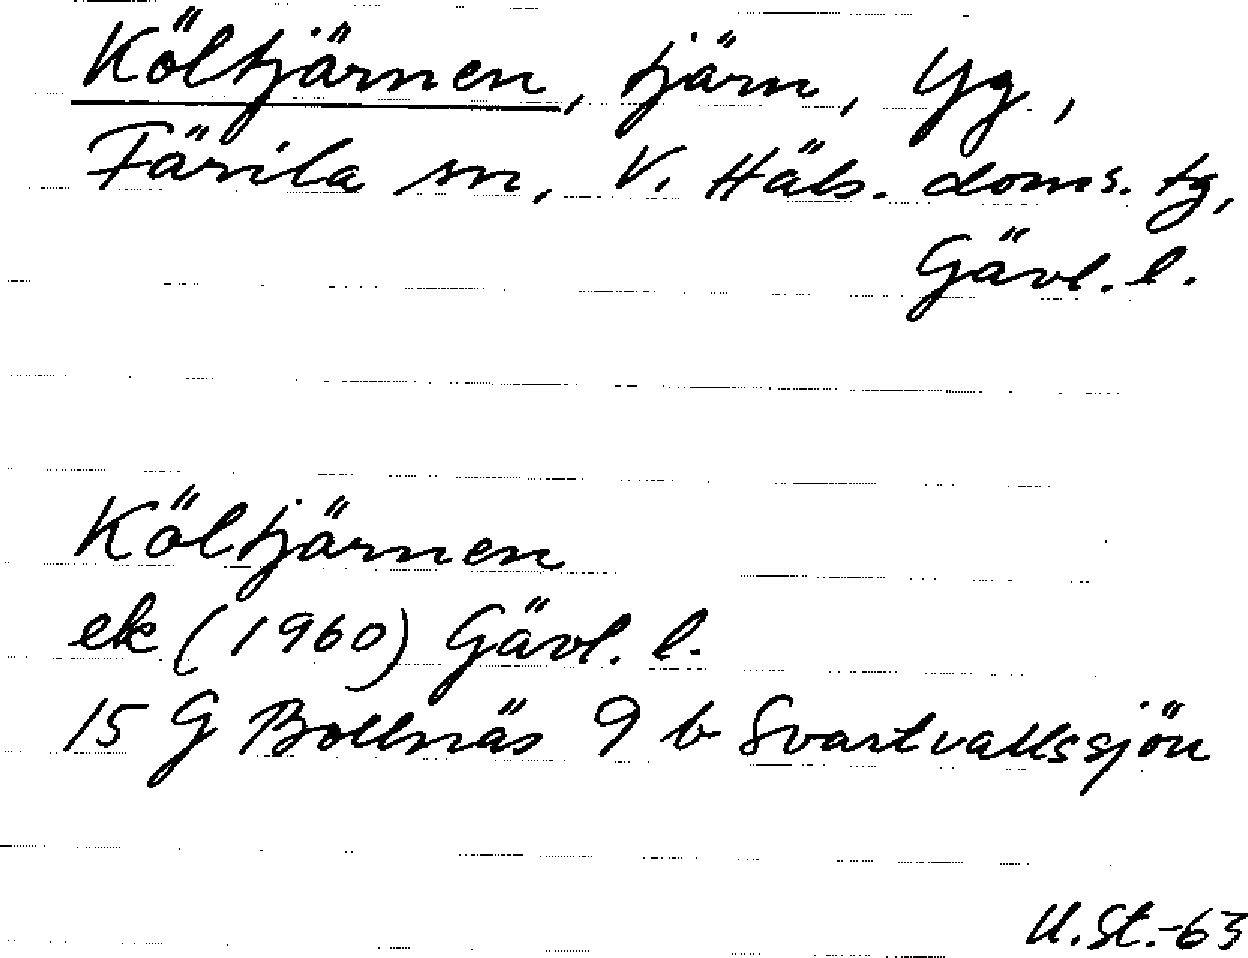 Költjärnen, tjärn, Yg.,
Färila sn, V. Häls. doms. tg,
Gävl. l.
Költjärnen
ek (1960) Gävl. l.
15 G Bollnäs 9 b Svartvallssjön
U.St.-63